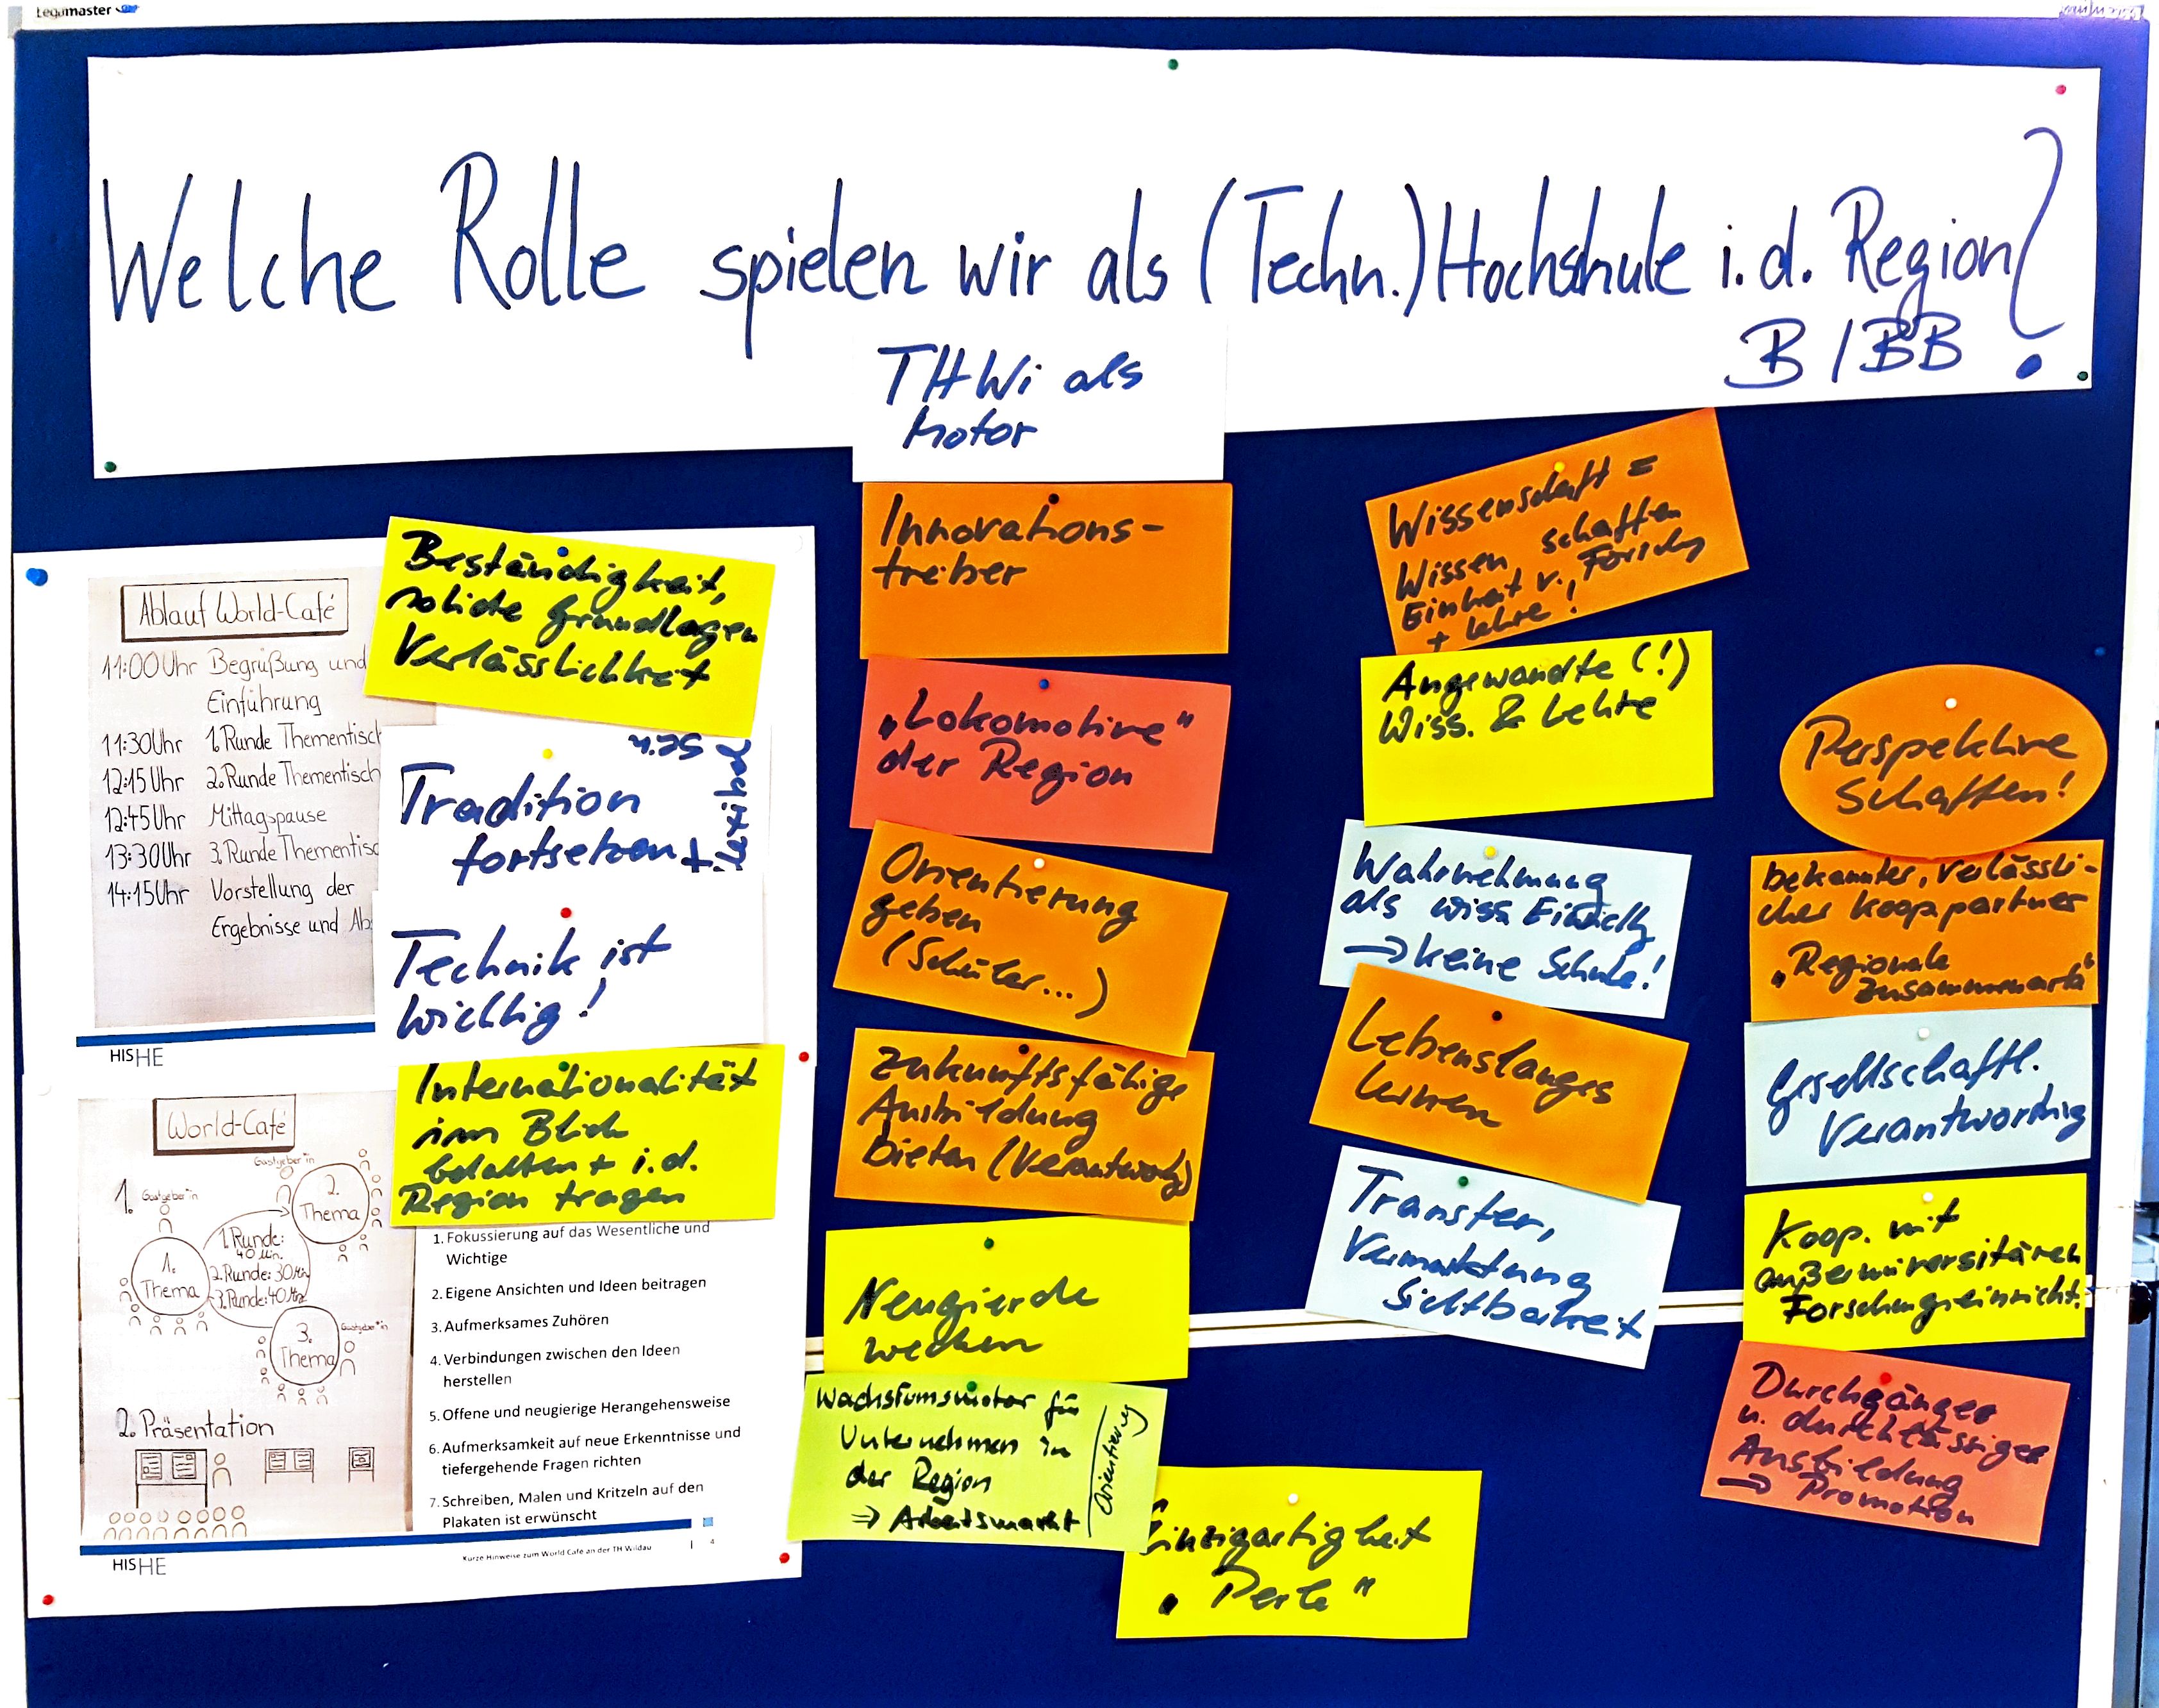 Legamaster
Welche Rolle spielen wir als (Techn.) Hochschule i.d. Region?
B / BB
THWi als
Motor
Ablauf World-Café
11:00 Uhr Begrüßung und
Einführung
11:30 Uhr 1. Runde Thementisch
12:15 Uhr 2. Runde Thementisch
12:45 Uhr Mittagspause
13:30 Uhr 3. Runde Thementisc
14:15 Uhr Vorstellung der
Ergebnisse und Ab
HISHE
World-Café
1.
Gastgeber*in
Gastgeber*in
2.
Thema
1.
Thema
1. Runde:
40 Min.
2. Runde: 30 Min
3. Runde: 40 Min
3.
Thema
Gastgeber*in
2. Präsentation
1. Fokussierung auf das Wesentliche und
Wichtige
2. Eigene Ansichten und Ideen beitragen
3. Aufmerksames Zuhören
4. Verbindungen zwischen den Ideen
herstellen
5. Offene und neugierige Herangehensweise
6. Aufmerksamkeit auf neue Erkenntnisse und
tiefergehende Fragen richten
7. Schreiben, Malen und Kritzeln auf den
Plakaten ist erwünscht
HISHE
Kurze Hinweise zum World Café an der TH Wildau
4
Beständigkeit,
solide Grundlagen
Verlässlichkeit
Tradition
fortsetzen +
flexibel
Technik ist
wichtig!
Internationalität
im Blick
behalten + i.d.
Region tragen
Innovations-
treiber
„Lokomotive“
der Region
Orientierung
geben
(Schüler...)
Zukunftsfähige
Ausbildung
bieten (Verantwortg)
Neugierde
wecken
Wachstumsmotor für
Unternehmen in
der Region
⇒ Arbeitsmarkt
Orientierung
Einzigartigkeit
„Perle“
Wissenschaft =
Wissen schaffen
Einheit v. Forschg
+ Lehre!
Angewandte (!)
Wiss. & Lehre
Wahrnehmung
als wiss. Einrichtg
→ keine Schule!
Lebenslanges
Lernen
Transfer,
Vermarktung
Sichtbarkeit
Perspektive
schaffen!
bekannter, verlässli-
cher Kooppartner
„Regionale
Zusammenarb“
Gesellschaftl.
Verantwortung
Koop. mit
außeruniversitären
Forschungseinricht.
Durchgängige
u. durchlässige
Ausbildung
⇒ Promotion